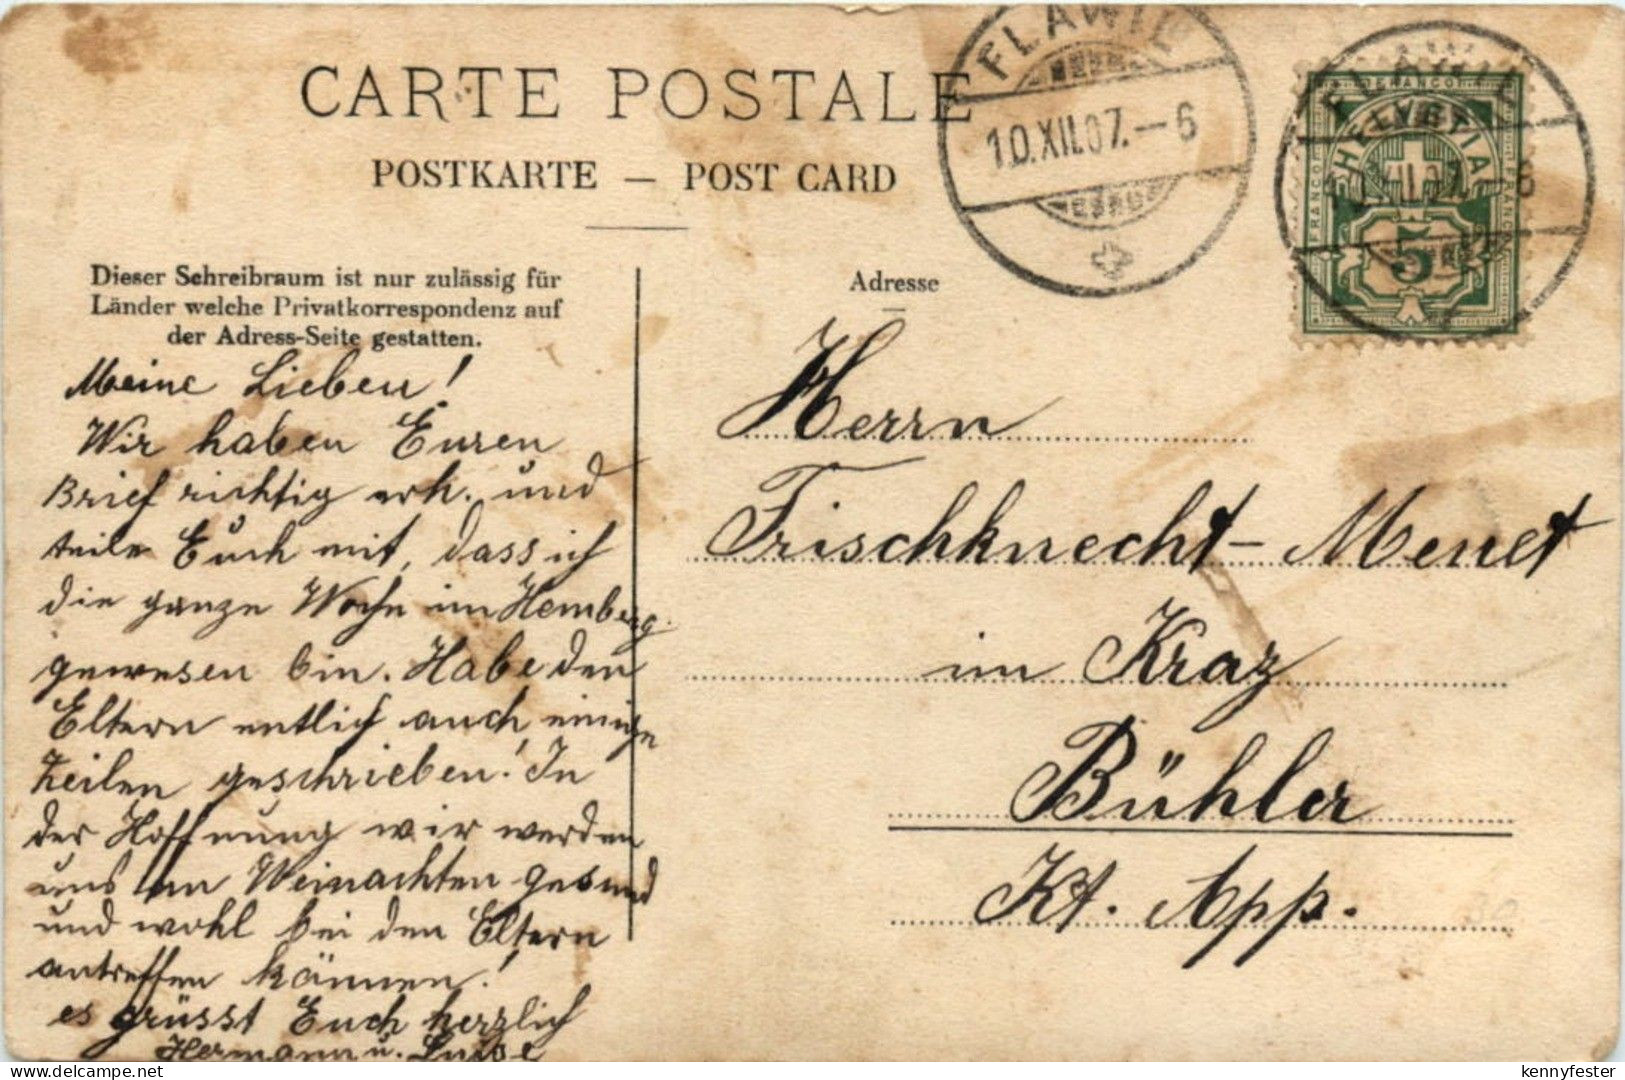 CARTE POSTALE
POSTKARTE — POST CARD
FLAWIL
10.XII.07.–6
FRANCO
HELVETIA
FRANCO
FRANCO
5
XII.07.–6
Dieser Schreibraum ist nur zulässig für
Länder welche Privatkorrespondenz auf
der Adress-Seite gestatten.
Meine Lieben!
Wir haben Euren
Brief richtig erh. und
teile Euch mit, dass ich
die ganze Woche im Hemberg
gewesen bin. Habe den
Eltern entlich auch einige
Zeilen geschrieben! In
der Hoffnung wir werden
uns an Weinachten gesund
und wohl bei den Eltern
antreffen können!
es grüsst Euch herzlich
Hermann u. Luise
Adresse
Herrn
Frischknecht-Menet
im Kraz
Bühler
Kt. App.
delcampe.net
kennyfester